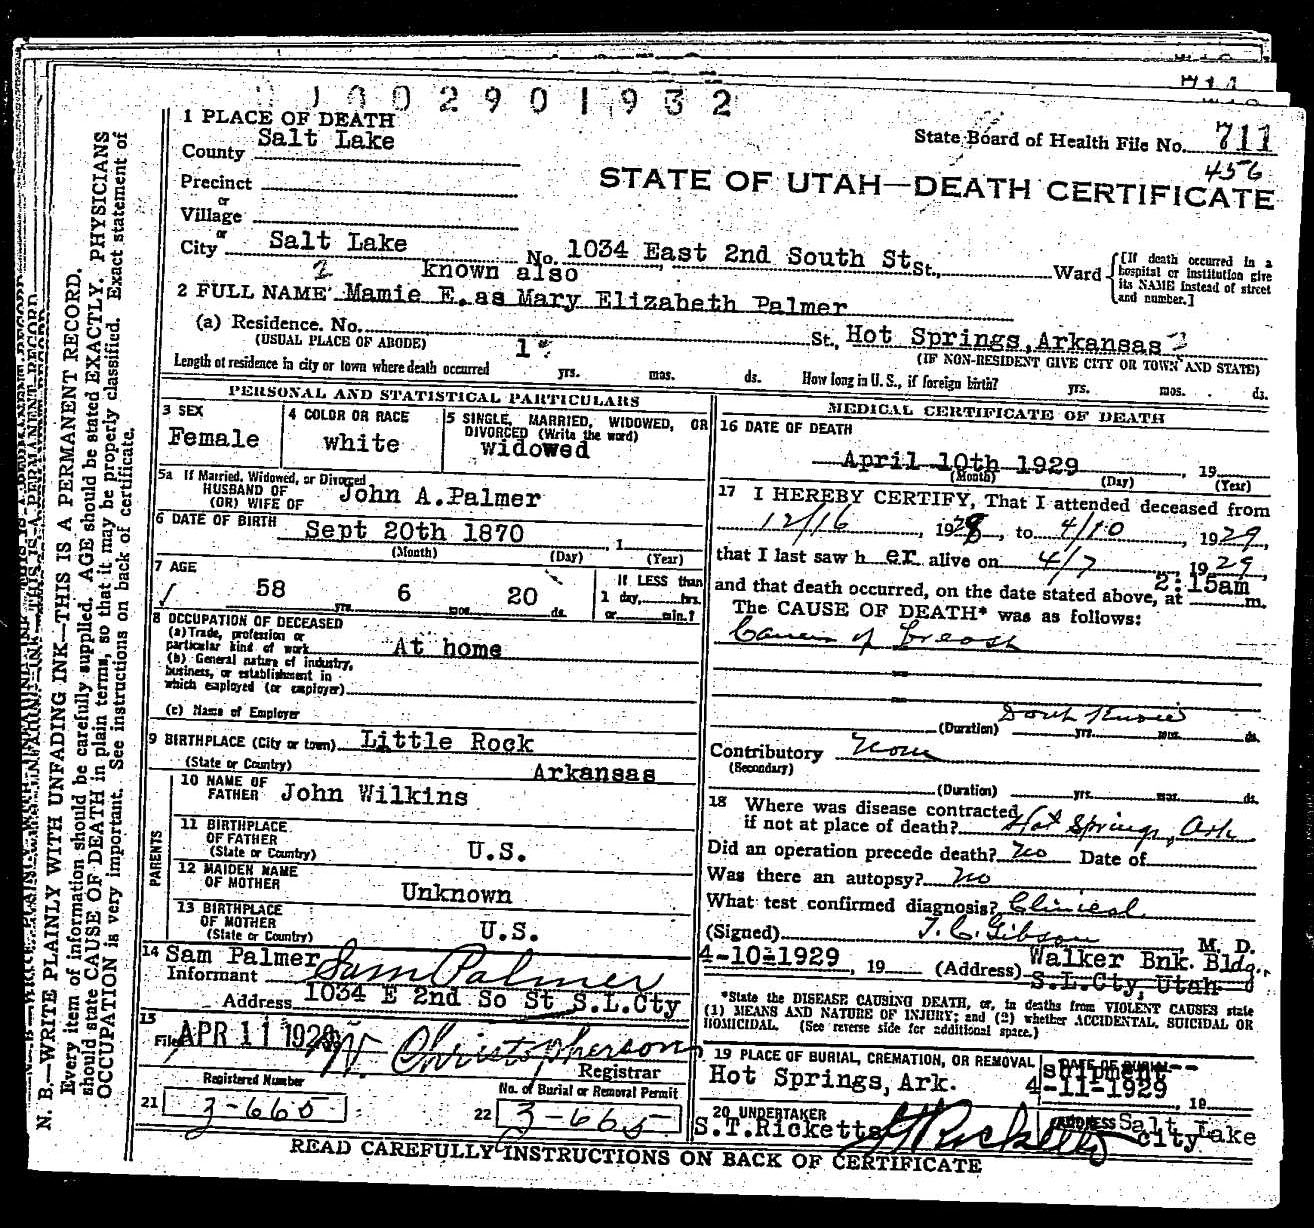 1002901932
1 PLACE OF DEATH
State Board of Health File No. 711
County Salt Lake
456
STATE OF UTAH—DEATH CERTIFICATE
Precinct
or
Village
or
City Salt Lake No. 1034 East 2nd South St St., Ward
[If death occurred in a hospital or institution give its NAME instead of street and number.]
2 known also
2 FULL NAME Mamie E. as Mary Elizabeth Palmer
(a) Residence. No. St., Hot Springs, Arkansas
(USUAL PLACE OF ABODE) (IF NON-RESIDENT GIVE CITY OR TOWN AND STATE)
Length of residence in city or town where death occurred 1 yrs. mos. ds. How long in U. S., if foreign birth? yrs. mos. ds.
PERSONAL AND STATISTICAL PARTICULARS
3 SEX
Female
4 COLOR OR RACE
white
5 SINGLE, MARRIED, WIDOWED, OR
DIVORCED (Write the word)
widowed
5a If Married, Widowed, or Divorced
HUSBAND OF
(OR) WIFE OF John A.Palmer
6 DATE OF BIRTH Sept 20th 1870, 1
(Month) (Day) (Year)
7 AGE
58 yrs. 6 mos. 20 ds.
If LESS than
1 day, hrs.
or min.?
8 OCCUPATION OF DECEASED
(a) Trade, profession or
particular kind of work At home
(b) General nature of industry,
business, or establishment in
which employed (or employer)
(c) Name of Employer
9 BIRTHPLACE (City or town) Little Rock
(State or Country) Arkansas
PARENTS
10 NAME OF
FATHER John Wilkins
11 BIRTHPLACE
OF FATHER
(State or Country) U.S.
12 MAIDEN NAME
OF MOTHER Unknown
13 BIRTHPLACE
OF MOTHER
(State or Country) U.S.
14 Sam Palmer
Informant Sam Palmer
Address 1034 E 2nd So St S.L.Cty
15
Filed APR 11 1929 W. Christopherson
Registrar
Registered Number
21 3-665
No. of Burial or Removal Permit
22 3-665
MEDICAL CERTIFICATE OF DEATH
16 DATE OF DEATH
April 10th 1929, 19
(Month) (Day) (Year)
17 I HEREBY CERTIFY, That I attended deceased from
12/16, 1928, to 4/10, 1929,
that I last saw h er alive on 4/7, 1929,
and that death occurred, on the date stated above, at 2:15am m.
The CAUSE OF DEATH* was as follows:
Cancer of breast
(Duration) yrs. mos. ds.
Contributory None
(Secondary)
(Duration) yrs. mos. ds.
18 Where was disease contracted
if not at place of death? Hot Springs, Ark
Did an operation precede death? No Date of
Was there an autopsy? No
What test confirmed diagnosis? Clinical
(Signed) T. C. Gibson, M. D.
4-10-1929, 19 (Address) Walker Bnk. Bldg.,
S.L.Cty, Utah
*State the DISEASE CAUSING DEATH, or, in deaths from VIOLENT CAUSES state
(1) MEANS AND NATURE OF INJURY; and (2) whether ACCIDENTAL, SUICIDAL OR
HOMICIDAL. (See reverse side for additional space.)
19 PLACE OF BURIAL, CREMATION, OR REMOVAL
Hot Springs, Ark.
DATE OF BURIAL
shipment
4-11-1929, 19
20 UNDERTAKER
S.T.Ricketts
ADDRESS Salt Lake
city
READ CAREFULLY INSTRUCTIONS ON BACK OF CERTIFICATE
N. B.—WRITE PLAINLY WITH UNFADING INK—THIS IS A PERMANENT RECORD.
Every item of information should be carefully supplied. AGE should be stated EXACTLY. PHYSICIANS
should state CAUSE OF DEATH in plain terms, so that it may be properly classified. Exact statement of
OCCUPATION is very important. See instructions on back of certificate.